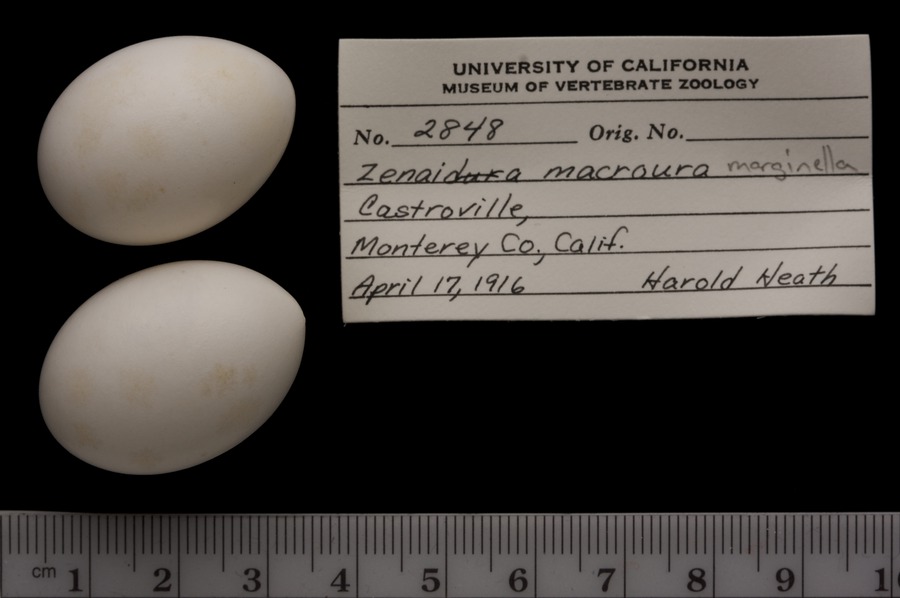 UNIVERSITY OF CALIFORNIA
MUSEUM OF VERTEBRATE ZOOLOGY
No. 2848 Orig. No.
Zenaidura macroura marginella
Castroville,
Monterey Co., Calif.
April 17, 1916 Harold Heath
cm 1 2 3 4 5 6 7 8 9 1